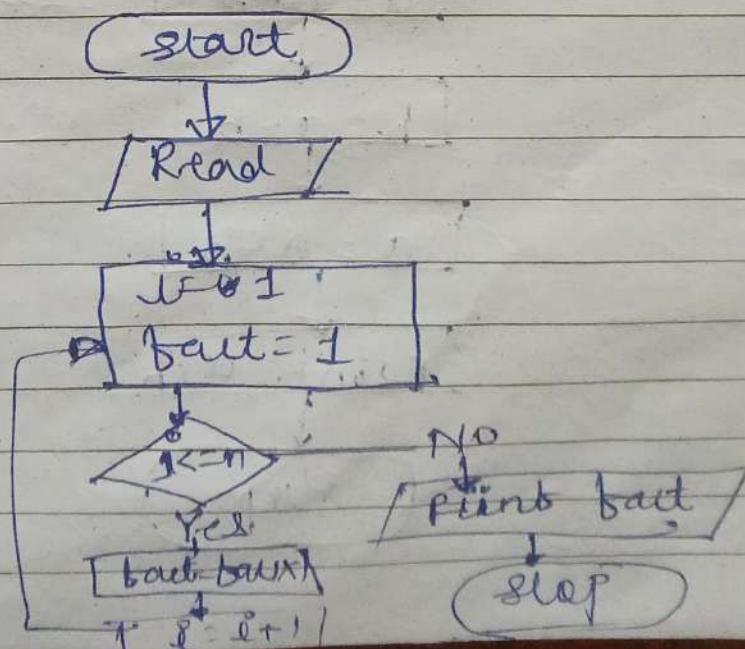 start
Read
i = 1
fact = 1
i<=n
NO
Yes
Print fact
fact=fact×i
stop
i = i+1